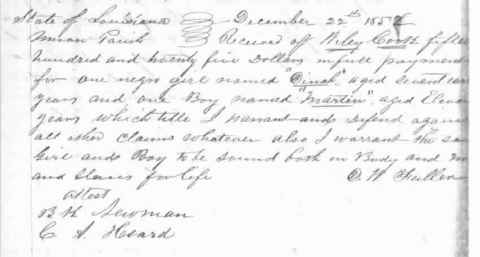 State of Louisiana December 22nd 185
Union Parish Received off Wiley Cook fifteen
hundred and twenty five Dollars in full payment
for one negro girl named "Dinah" aged seventeen
years and one Boy named "Martin" aged Eleven
years which title I warrant and defend against
all other claims whatever also I warrant the sa
Girl and Boy to be sound both in Body and
and Slaves for life
attest
B H Newman
C A Heard